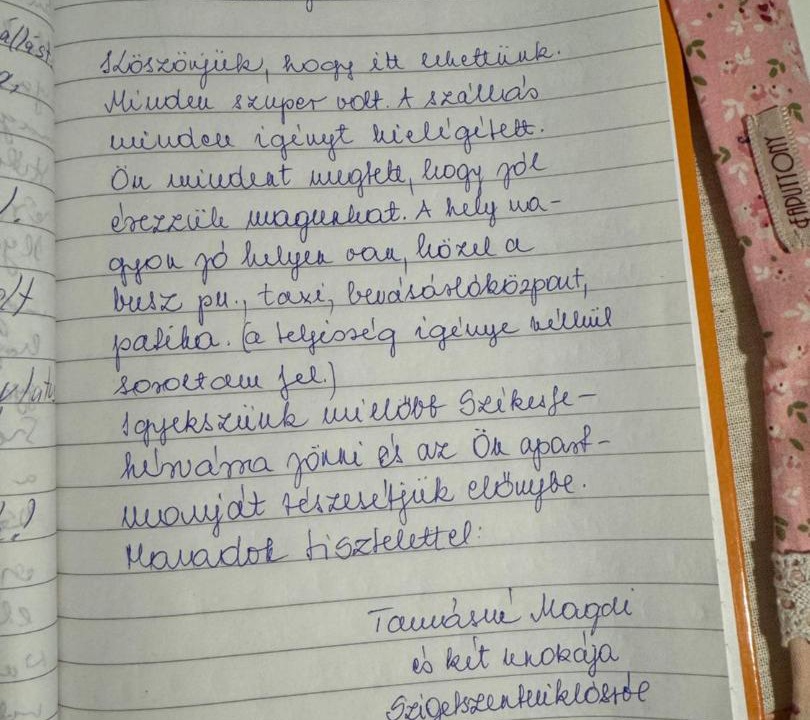 Köszönjük, hogy itt lehettünk.
Minden szuper volt. A szállás
minden igényt kielégített.
Ön mindent megtett, hogy jól
érezzük magunkat. A hely na-
gyon jó helyen van, közel a
busz pu., taxi, bevásárlóközpont,
patika. (a teljesség igénye nélkül
soroltam fel.)
Igyekszünk mielőbb Székesfe-
hérvárra jönni és az Ön apart-
manját részesítjük előnybe.
Maradok tisztelettel:
Tamásné Magdi
és két unokája
Szigetszentmiklósról